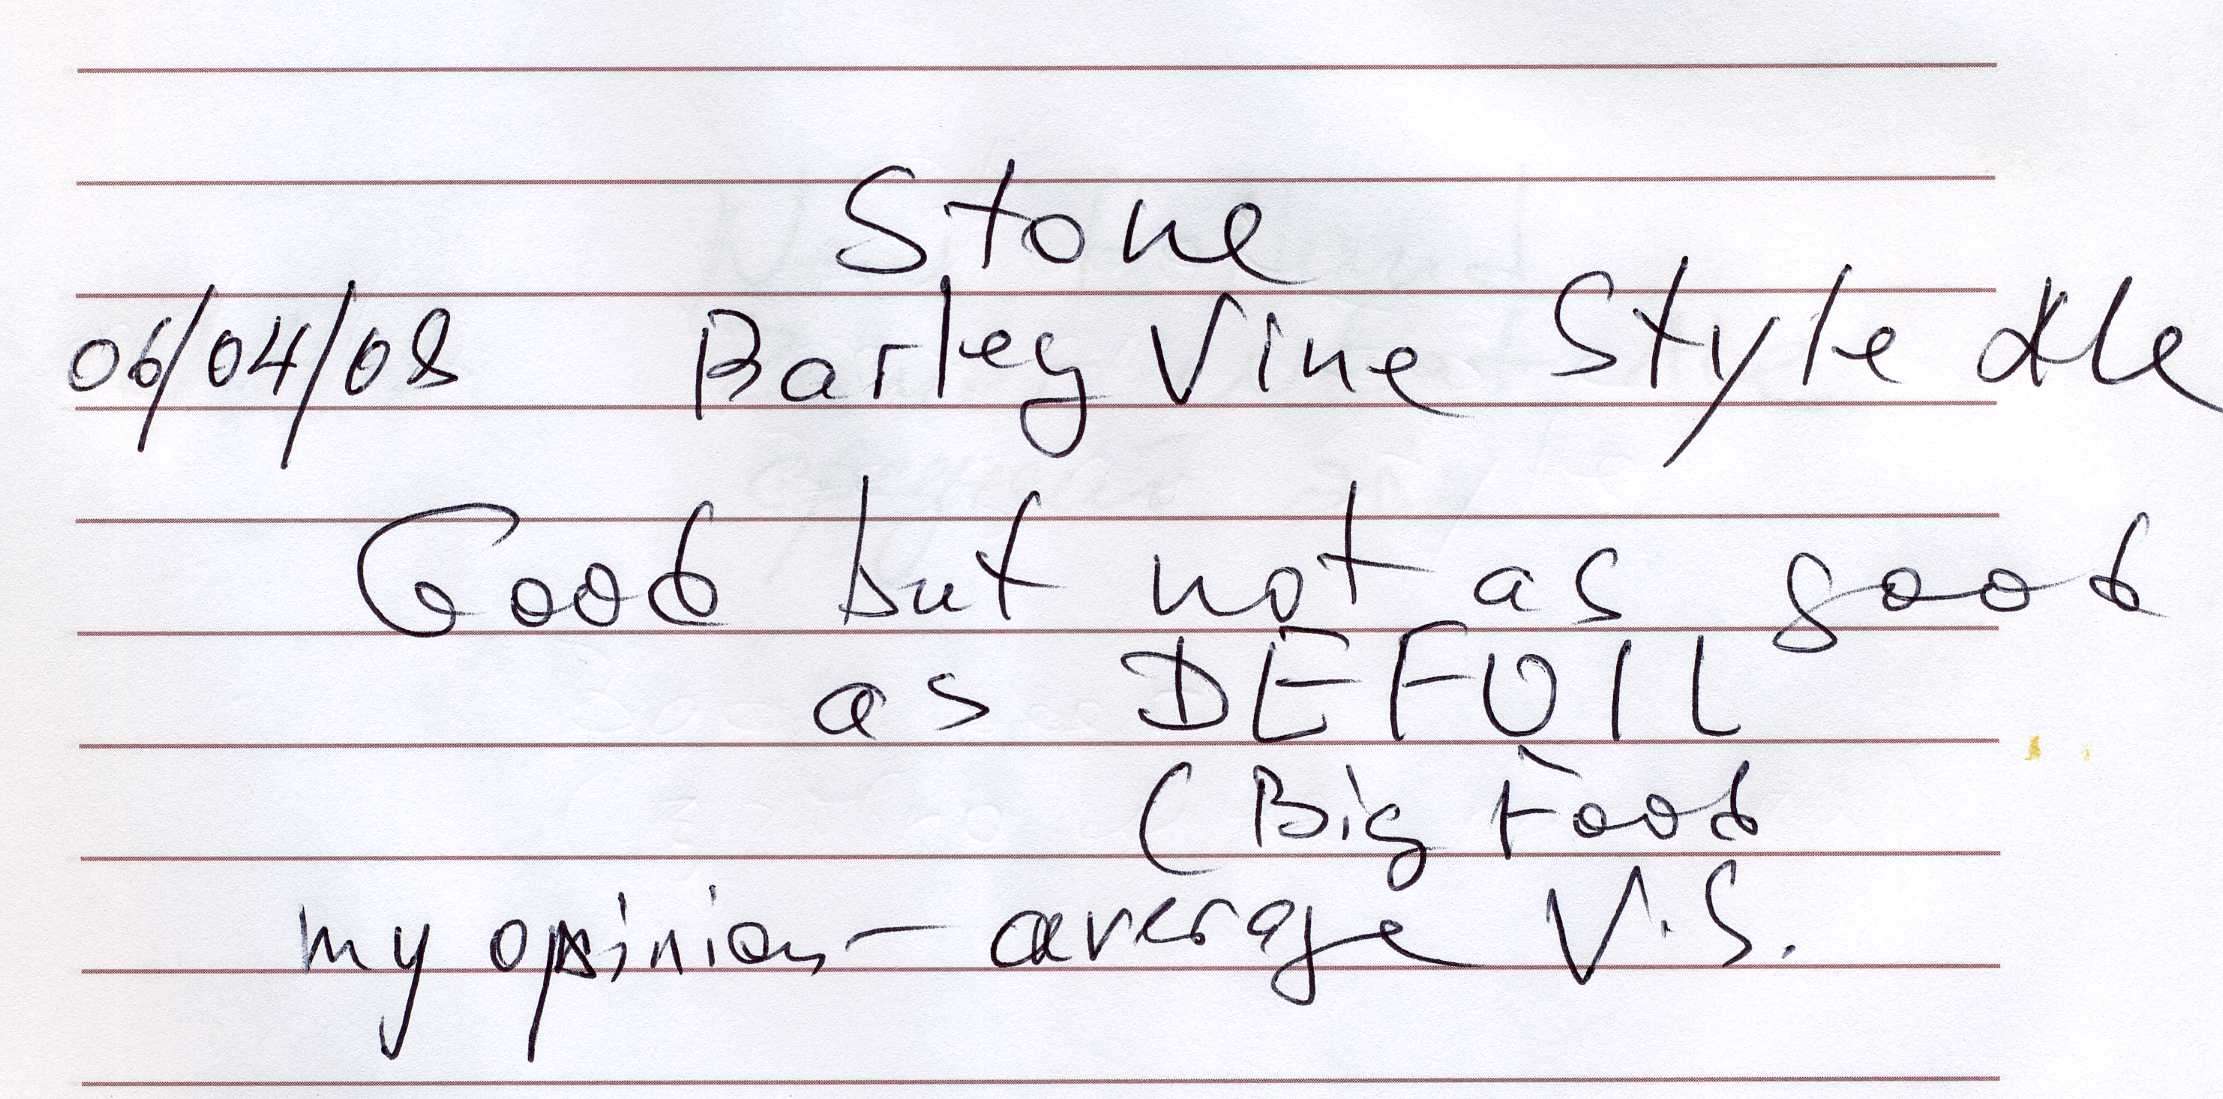 Stone
06/04/08 Barley Vine Style Ale
Good but not as good
as DEFOIL
(Big Food
my opinion - average V.S.